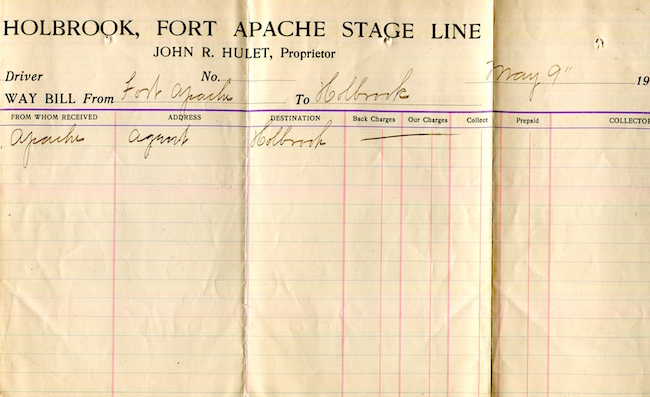 HOLBROOK, FORT APACHE STAGE LINE
JOHN R. HULET, Proprietor
Driver No. May 9" 19
WAY BILL From Fort Apache To Holbrook
FROM WHOM RECEIVED ADDRESS DESTINATION Back Charges Our Charges Collect Prepaid COLLECTOR
Apache Agent Holbrook